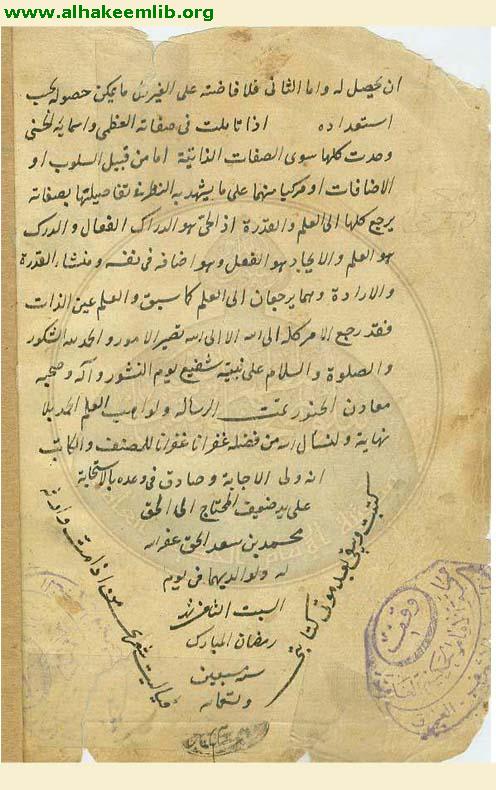 www.alhakeemlib.org
ان يحصل له واما الثانى فلافاضته على الغير كل ما يمكن حصوله بحسب
استعداده اذا تاملت فى صفاته العظمى واسمايه الحسنى
وجدت كلها سوى الصفات الذاتية اما من قبيل السلوب او
الاضافات او مركبا منهما على ما يشهد به النظر فى تفاصيلها بصفاته
يرجع كلها الى العلم والقدرة اذ الحى هو الدراك الفعال والدرك
هو العلم والايجاد هو الفعل وهو اضافه فى نفسه ومنشاء القدرة
والارادة وهما يرجعان الى العلم كما سبق والعلم عين الذات
فقد رجع الامر كله الى الله الا الى الله تصير الامور والحمد لله الشكور
والصلوة والسلام على نبيه شفيع يوم النشور وآله وصحبه
معادن الحبور تمت الرساله ولواهب العلم الحمد بلا
نهاية ولنسال الله من فضله غفرانا غفرانا للمصنف والكاتب
انه ولى الاجابة وصادق فى وعده بالاستجابة
على يد ضعيف المحتاج الى الحق
محمد بن سعد الحق غفر الله
له ولوالديهما فى يوم
السبت الثامن
رمضان المبارك
سنه سبعين
وتسعمائه
كتبت ويبقى بعد موتى كتابتى
فياليت شعرى من اذا مت
وقف